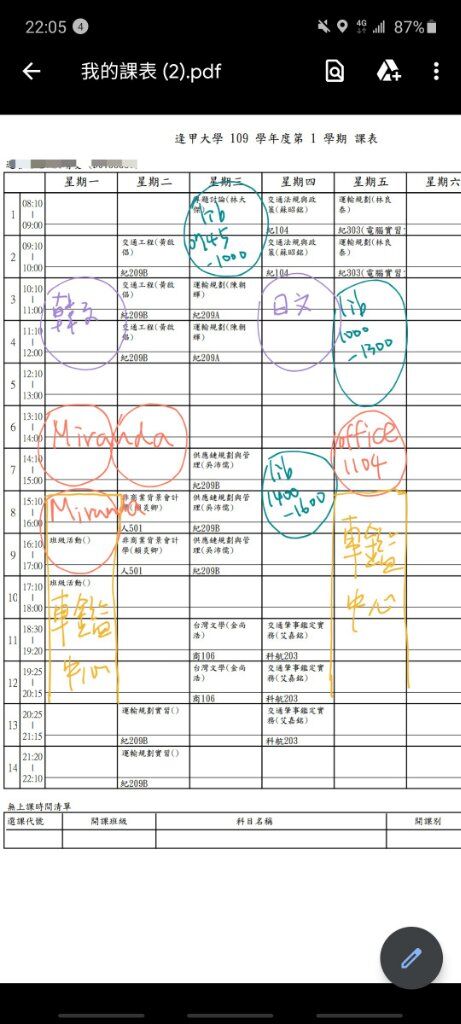 22:05 4 4G 87%
我的課表 (2).pdf
逢甲大學 109 學年度第 1 學期 課表
星期一 星期二 星期三 星期四 星期五 星期六
1 08:10 | 09:00
專題討論(林大傑)
交通法規與政策(蘇昭銘) 紀104
運輸規劃(林良泰) 紀303(電腦實習
lib 0745 -1000
2 09:10 | 10:00
交通工程(黃啟倡) 紀209B
交通法規與政策(蘇昭銘) 紀104
運輸規劃(林良泰) 紀303(電腦實習
3 10:10 | 11:00
韓文
交通工程(黃啟倡) 紀209B
運輸規劃(陳朝輝) 紀209A
日文
lib 1000 -1300
4 11:10 | 12:00
交通工程(黃啟倡) 紀209B
運輸規劃(陳朝輝) 紀209A
5 12:10 | 13:00
6 13:10 | 14:00
Miranda
office 1104
7 14:10 | 15:00
供應鏈規劃與管理(吳沛儒) 紀209B
lib 1400 -1600
8 15:10 | 16:00
Miranda
非商業背景會計學(賴炎卿) 人501
供應鏈規劃與管理(吳沛儒) 紀209B
車鑑中心
9 16:10 | 17:00
班級活動()
非商業背景會計學(賴炎卿) 人501
供應鏈規劃與管理(吳沛儒) 紀209B
10 17:10 | 18:00
班級活動()
車鑑中心
11 18:30 | 19:20
台灣文學(金尚浩) 商106
交通肇事鑑定實務(艾嘉銘) 科航203
12 19:25 | 20:15
台灣文學(金尚浩) 商106
交通肇事鑑定實務(艾嘉銘) 科航203
13 20:25 | 21:15
運輸規劃實習() 紀209B
交通肇事鑑定實務(艾嘉銘) 科航203
14 21:20 | 22:10
運輸規劃實習() 紀209B
無上課時間清單
選課代號 開課班級 科目名稱 開課別